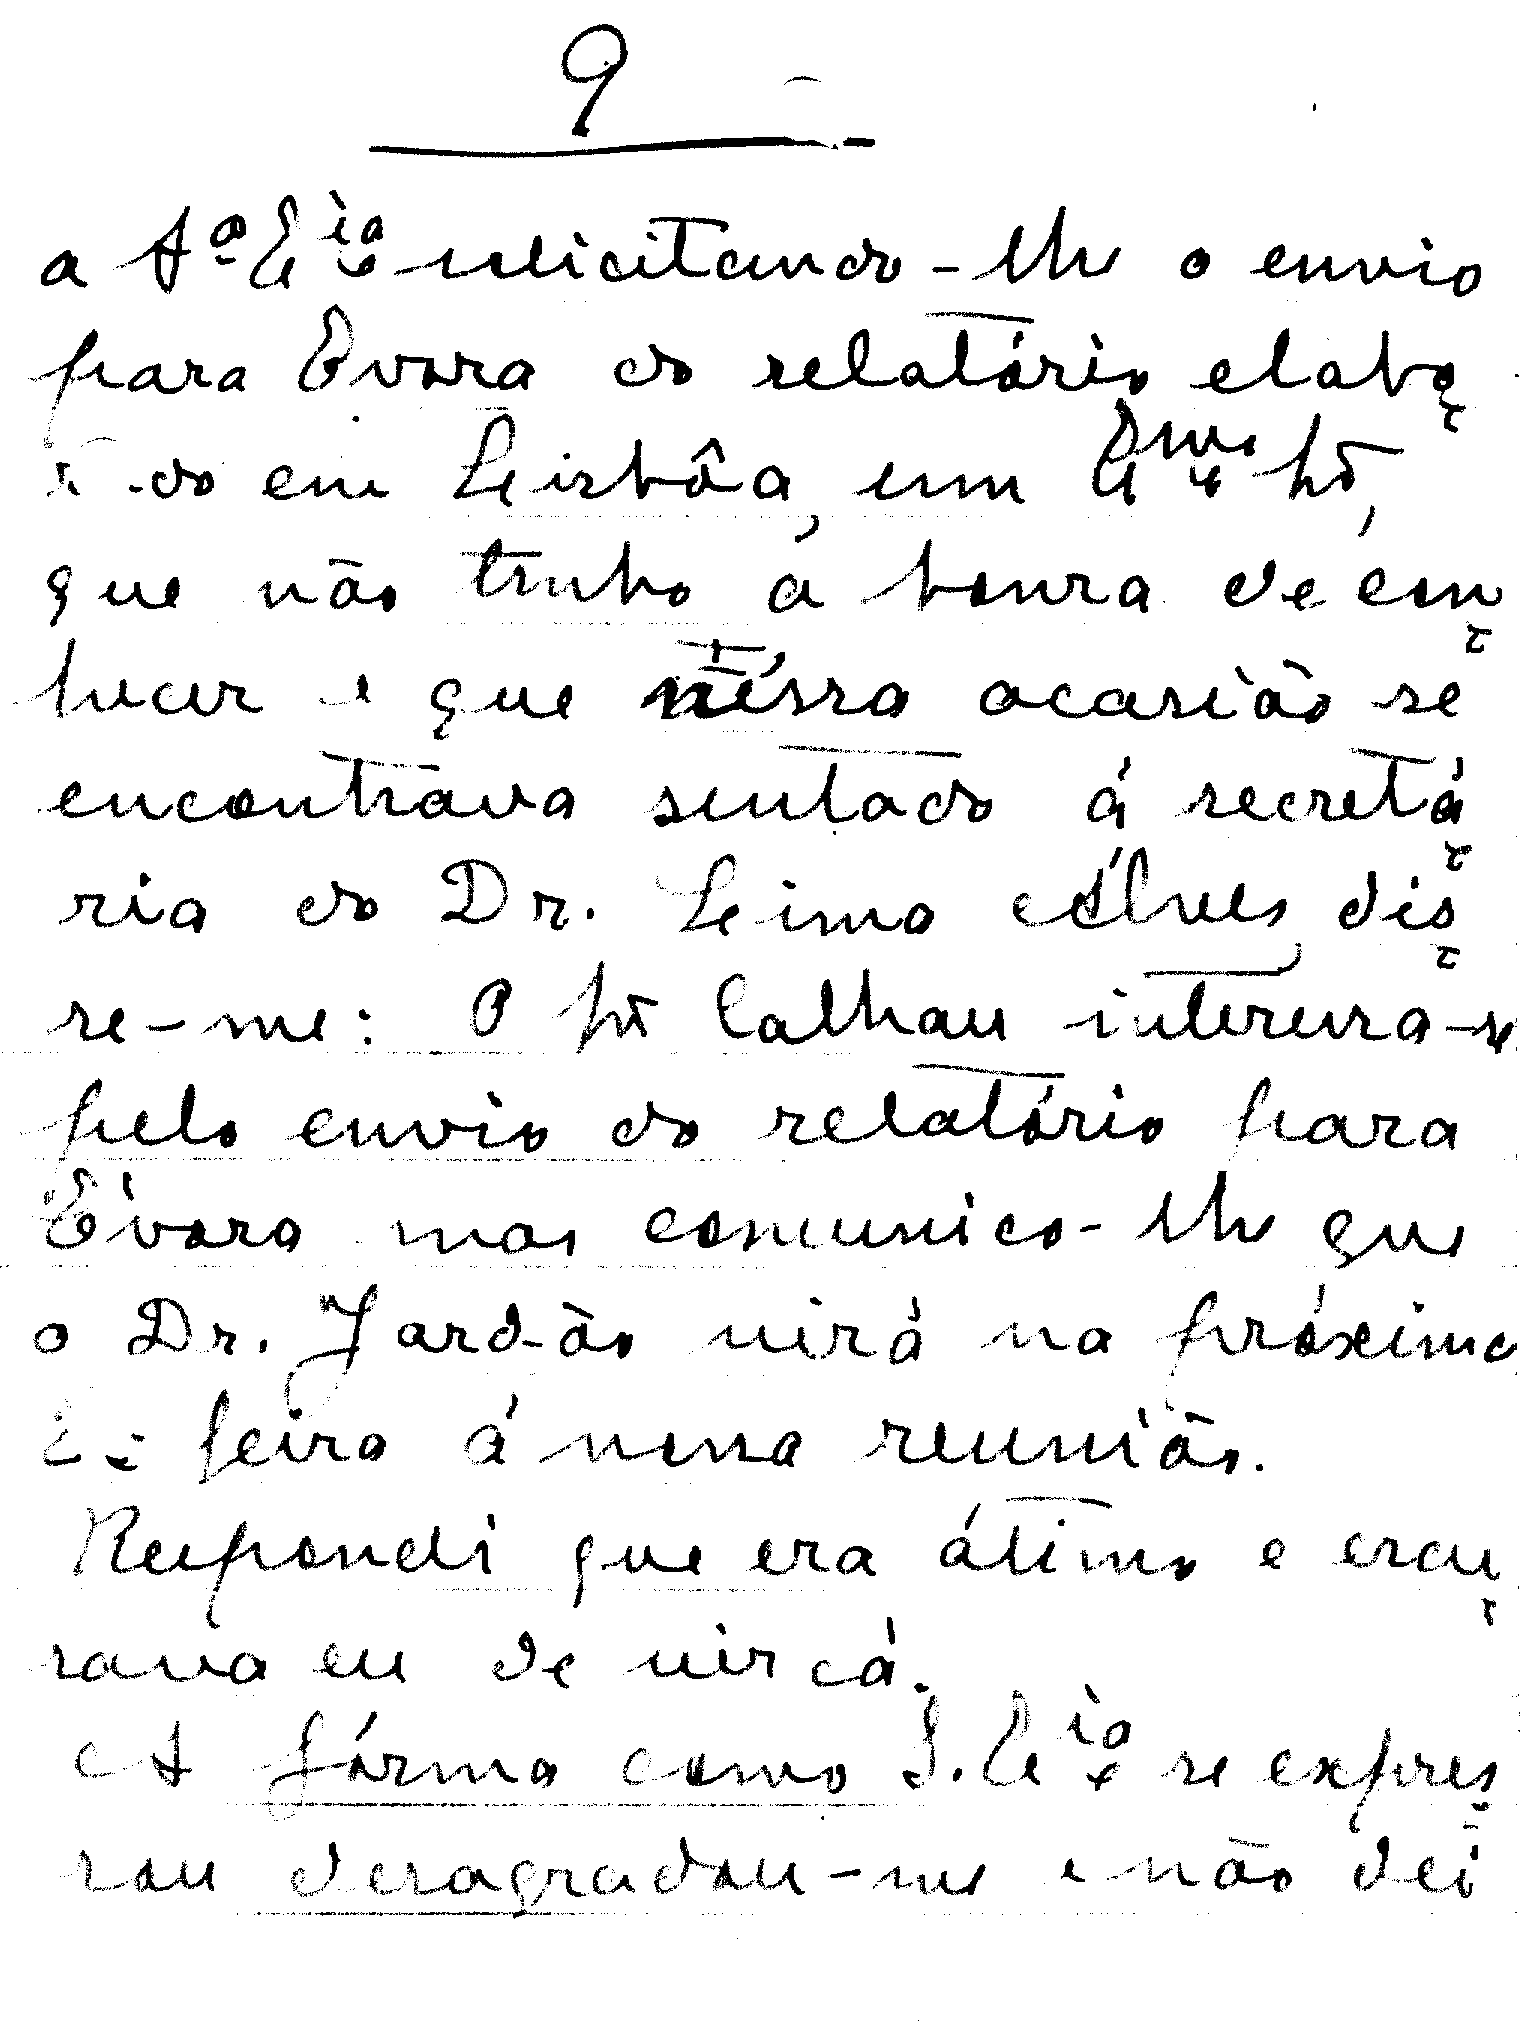 9
a S.ª Ex.ia solicitando-lhe o envio
para Evora do relatório elabo
rado em Lisbôa, um Exmo Sr,
que não tinha a honra de con
hecer e que néssa ocasião se
encontrava sentado á secretá
ria do Dr. Lima Alves, dis
se-me: O Sr Calhau interessa-se
pelo envio do relatório para
Évora mas comunico-lhe que
o Dr. Jardão virá na próxima
feira á nossa reunião.
Respondi que era ótimo e escu
sava eu de vir cá.
A fórma como S. Ex.ia se expres
sou desagradou-me e não dei